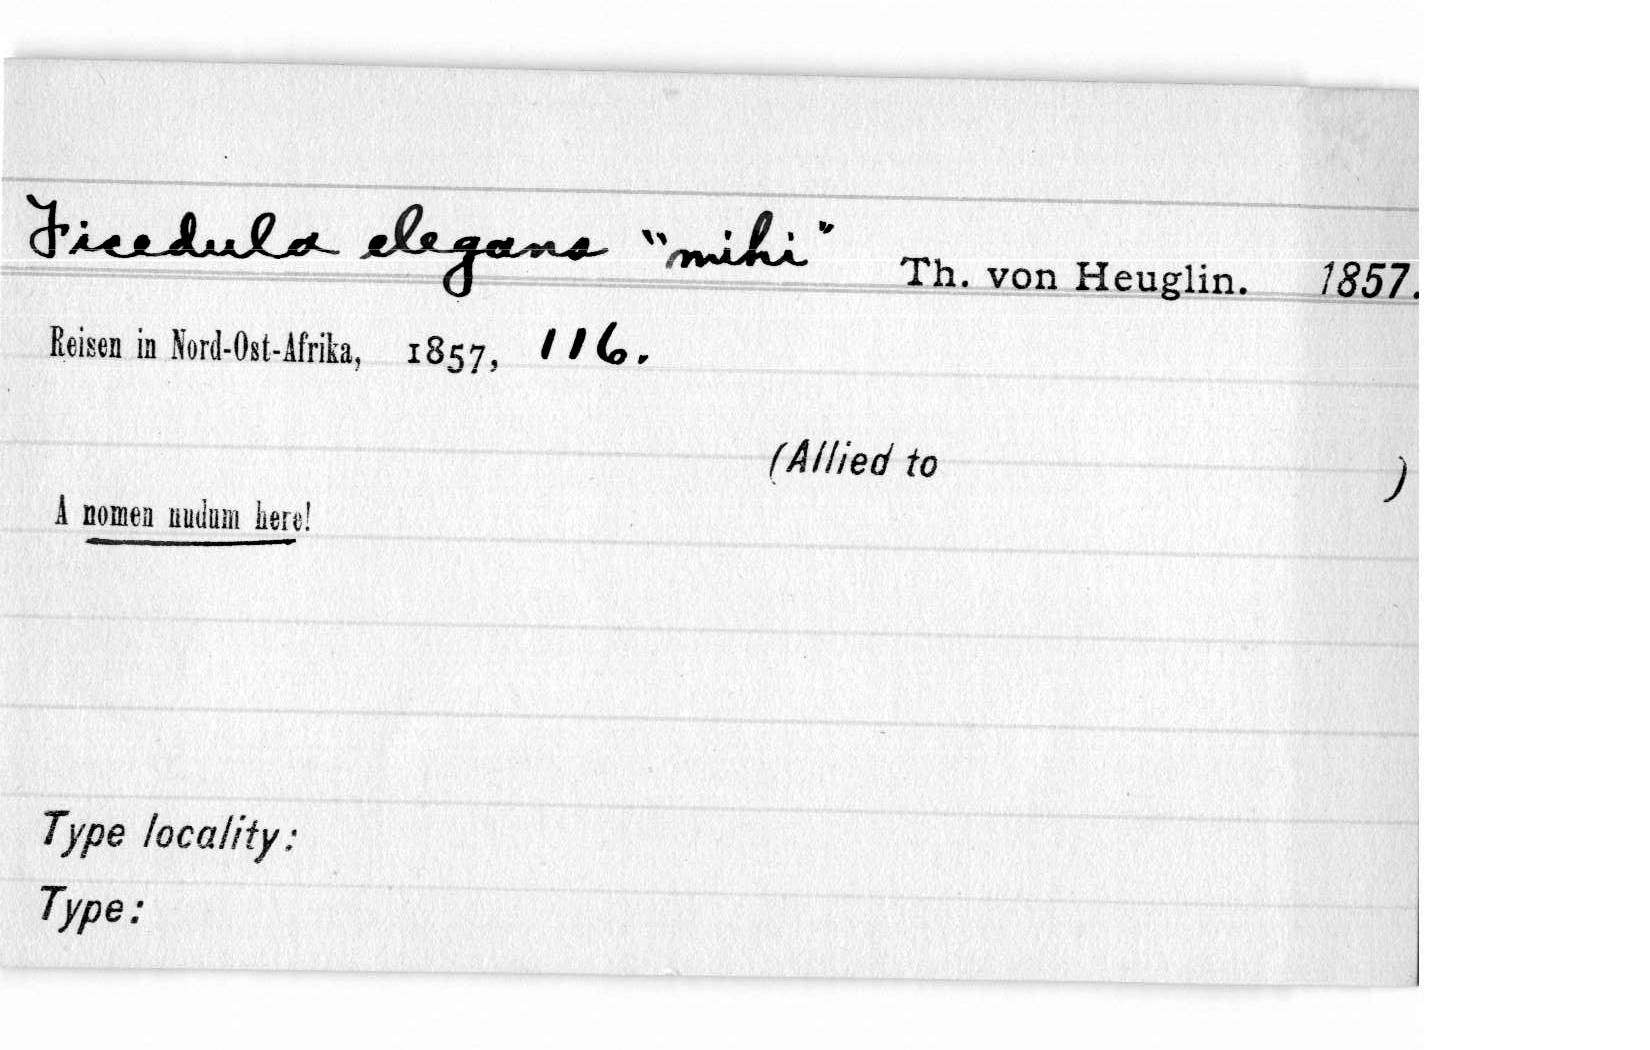 Ficedula elegans "mihi" Th. von Heuglin. 1857.
Reisen in Nord-Ost-Afrika, 1857, 116.
(Allied to )
A nomen nudum here!
Type locality:
Type: